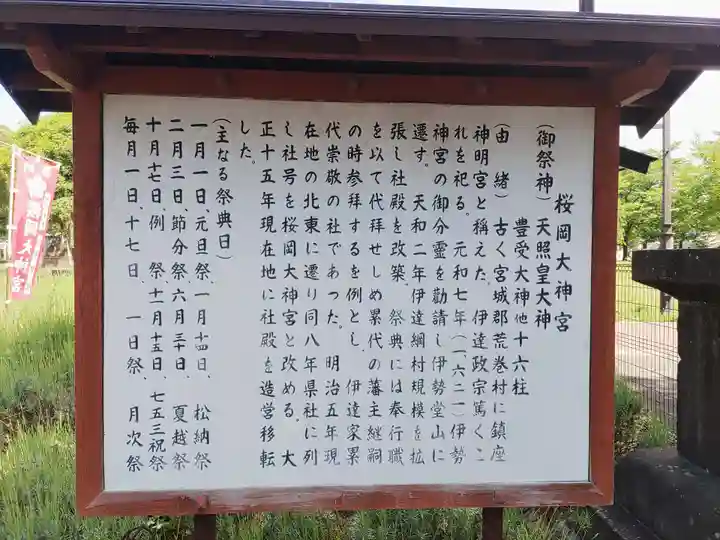 桜岡大神宮
(御祭神) 天照皇大神
豊受大神他十六柱
(由緒) 古く宮城郡荒巻村に鎮座
神明宮と称えた。伊達政宗篤くこ
れを祀る。元和七年(一、六二一)伊勢
神宮の御分霊を勧請し伊勢堂山に
遷す。天和二年伊達綱村規模を拡
張し社殿を改築。祭典には奉行職
を以て代拝せしめ累代の藩主継嗣
の時参拝するを例とし、伊達家累
代崇敬の社であった。明治五年現
在地の北東に遷り同八年県社に列
し社号を桜岡大神宮と改める。大
正十五年現在地に社殿を造営移転
した。
(主なる祭典日)
一月一日、元旦祭、一月十四日、松納祭
二月三日、節分祭、六月三十日、夏越祭
十月十七日、例祭、十一月十五日、七五三祝祭
毎月一日、十七日、一日祭、月次祭
桜岡大神宮